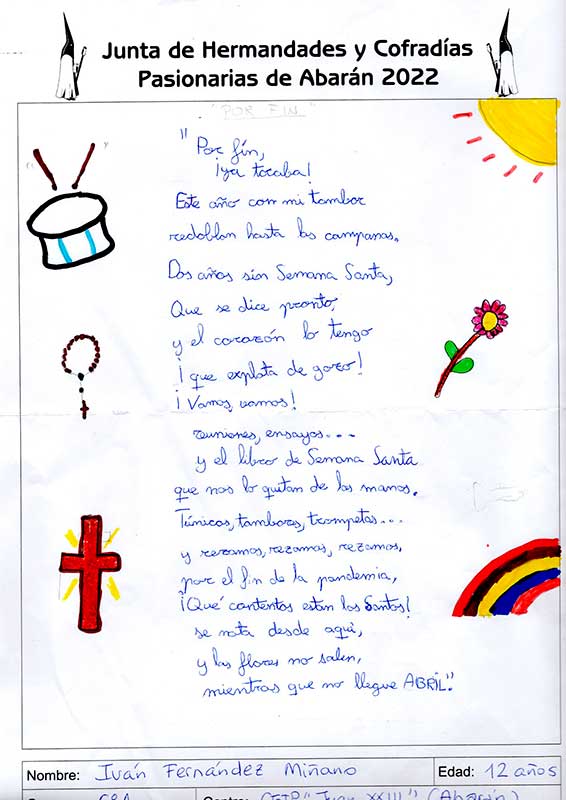 Junta de Hermandades y Cofradías
Pasionarias de Abarán 2022
"POR FIN"
"Por fín,
¡ya tocaba!
Este año con mi tambor
redoblan hasta las campanas.
Dos años sin Semana Santa,
Que se dice pronto,
y el corazón lo tengo
¡que explota de gozo!
¡Vamos, vamos!
reuniones, ensayos...
y el libro de Semana Santa
que nos lo quitan de las manos.
Túnicas, tambores, trompetas...
y rezamos, rezamos, rezamos,
por el fin de la pandemia,
¡Qué contentos estan los Santos!
se nota desde aquí,
y las flores no salen,
mientras que no llegue ABRIL".
Nombre: Iván Fernández Miñano
Edad: 12 años
CEIP "Juan XXIII" (Abarán)